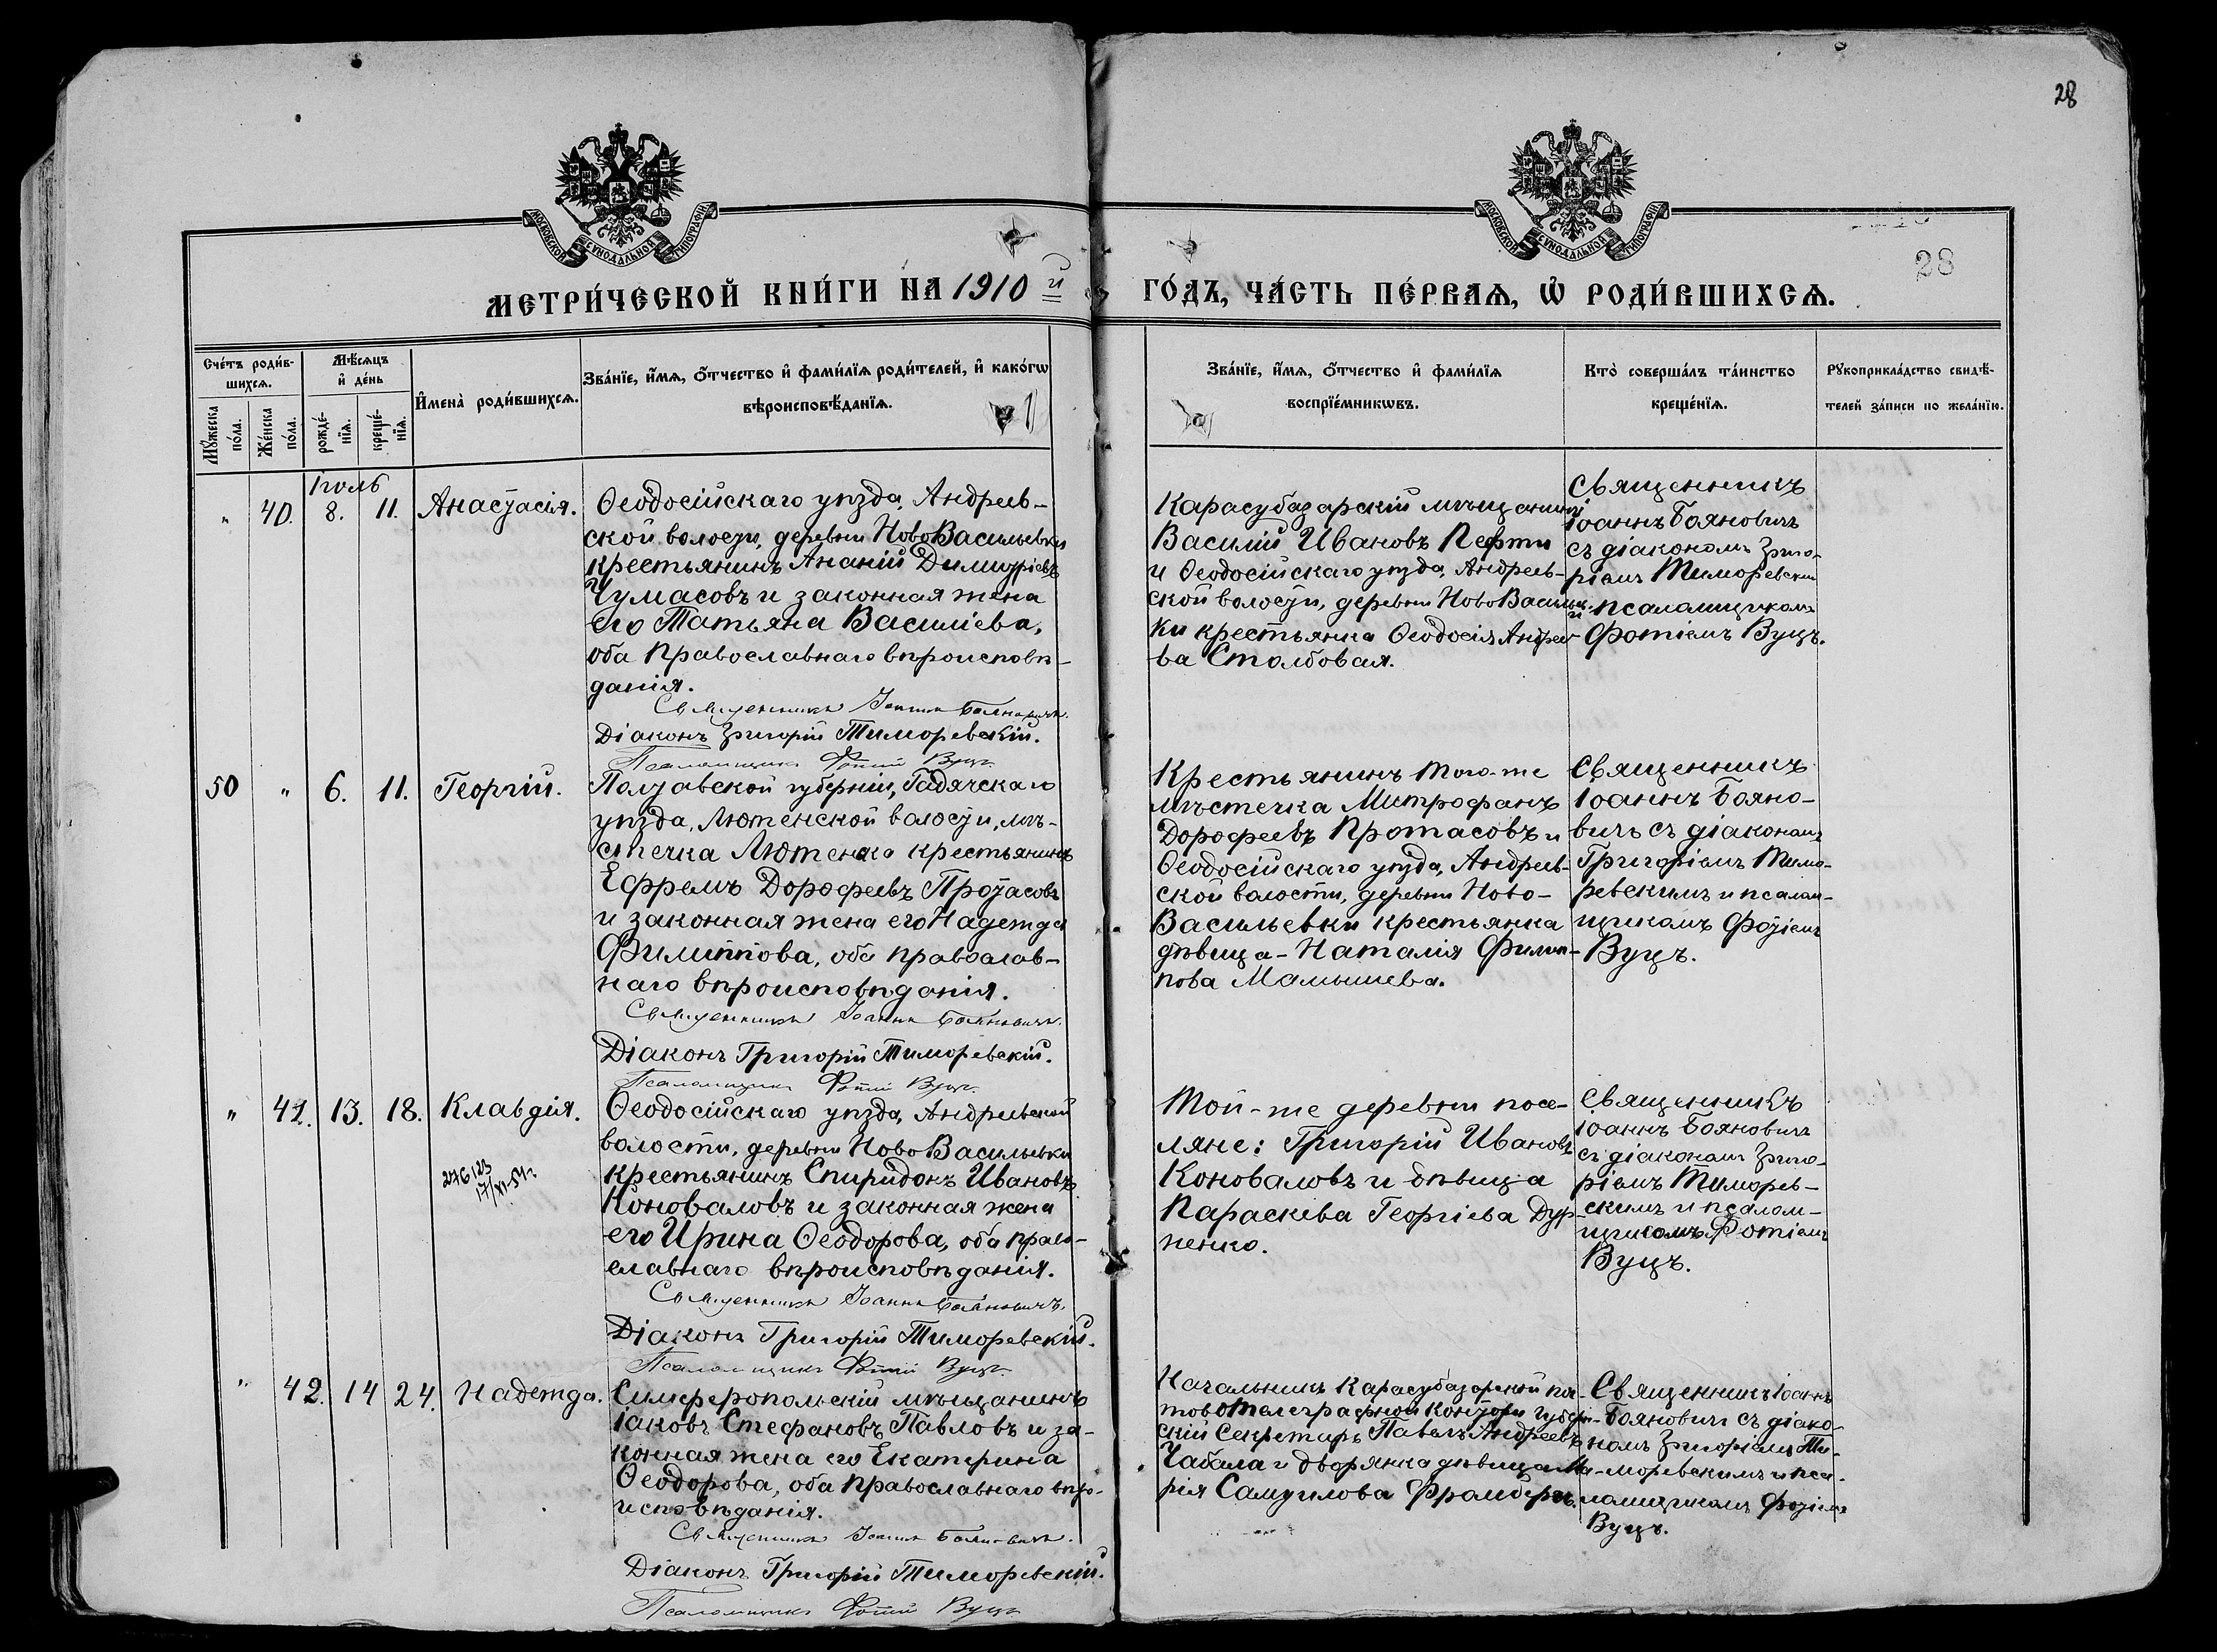 28
28
МОСКОВСКОЙ СУНОДАЛЬНОЙ ТИПОГРАФІИ
МОСКОВСКОЙ СУНОДАЛЬНОЙ ТИПОГРАФІИ
МЕТРИ́ЧЕСКОЙ КНИ́ГИ НА 1910 й
ГО́ДЪ, ЧА́СТЬ ПЕ́РВАѦ, Ѡ РОДИ́ВШИХСѦ.
Сче́тъ роди́в-
шихсѧ.
Мꙋ́жеска
по́ла.
Же́нска
по́ла.
Мѣ́сѧцъ
и҆ де́нь
рожде́-
нїѧ.
креще́-
нїѧ.
И҆мена̀ роди́вшихсѧ.
Зва́нїе, и҆́мѧ, ѻ҆́тчество и҆ фами́лїѧ роди́телей, и҆ како́гѡ
вѣроисповѣ́данїѧ.
Зва́нїе, и҆́мѧ, ѻ҆́тчество и҆ фами́лїѧ
воспрїе́мникѡвъ.
Кто̀ соверша́лъ та́инство
креще́нїѧ.
Рꙋкоприкла́дство свидѣ́-
телей за́писи по жела́нїю.
Іюль
" 40. 8. 11. Анастасія.
Ѳеодосійскаго уѣзда, Андреев-
ской волости, деревни НовоВасильевки
крестьянинъ Ананій Димитріевъ
Чумасовъ и законная жена
его Татьяна Василіева,
оба православнаго вѣроисповѣ-
данія.
Священникъ Іоаннъ Бояновичъ.
Діаконъ Григорій Тиморевскій.
Псаломщикъ Фотій Вуцъ
Карасубазарскій мѣщанинъ
Василій Ивановъ Пефти
и Ѳеодосійскаго уѣзда, Андреев-
ской волости, деревни НовоВасильев-
ки крестьянка Ѳеодосія Андрее-
ва Столбовая.
Священникъ
Іоаннъ Бояновичъ
съ діакономъ Григо-
ріемъ Тиморевскимъ
и псаломщикомъ
Фотіемъ Вуцъ.
50 " 6. 11. Георгій.
Полтавской губерніи, Гадячскаго
уѣзда, Лютенской волости, мѣ-
стечка Лютенка крестьянинъ
Ефремъ Дорофеевъ Протасовъ
и законная жена его Надежда
Филиппова, оба православ-
наго вѣроисповѣданія.
Священникъ Іоаннъ Бояновичъ.
Діаконъ Григорій Тиморевскій.
Псаломщикъ Фотій Вуцъ.
Крестьянинъ того-же
мѣстечка Митрофанъ
Дорофеевъ Протасовъ и
Ѳеодосійскаго уѣзда, Андреев-
ской волости, деревни Ново-
Васильевки крестьянка
дѣвица - Наталія Филип-
пова Мамышева.
Священникъ
Іоаннъ Бояно-
вичъ съ діакономъ
Григоріемъ Тимо-
ревскимъ и псалом-
щикомъ Фотіемъ
Вуцъ.
" 41. 13. 18. Клавдія.
Ѳеодосійскаго уѣзда, Андреевской
волости, деревни НовоВасильевки
крестьянинъ Спиридонъ Ивановъ
Коноваловъ и законная жена
его Ирина Ѳеодорова, оба право-
славнаго вѣроисповѣданія.
Священникъ Іоаннъ Бояновичъ.
Діаконъ Григорій Тиморевскій.
Псаломщикъ Фотій Вуцъ.
Той-же деревни посе-
ляне: Григорій Ивановъ
Коноваловъ и дѣвица
Параскева Георгіева Дур-
ненко.
Священникъ
Іоаннъ Бояновичъ
съ діакономъ Григо-
ріемъ Тиморев-
скимъ и псалом-
щикомъ Фотіемъ
Вуцъ.
" 42. 14 24. Надежда.
Симферопольскій мѣщанинъ
Іаковъ Стефановъ Павловъ и за-
конная жена его Екатерина
Ѳеодорова, оба православнаго вѣро-
исповѣданія.
Священникъ Іоаннъ Бояновичъ.
Діаконъ Григорій Тиморевскій.
Псаломщикъ Фотій Вуцъ
Начальникъ Карасубазарской поч-
тово телеграфной конторы Губерн-
скій Секретарь Павелъ Андреевъ
Чабала и дворянка дѣвица Ма-
рія Самуилова
Священникъ Іоаннъ
Бояновичъ съ діако-
номъ Григоріемъ Ти-
моревскимъ и пса-
ломщикомъ Фотіемъ
Вуцъ.